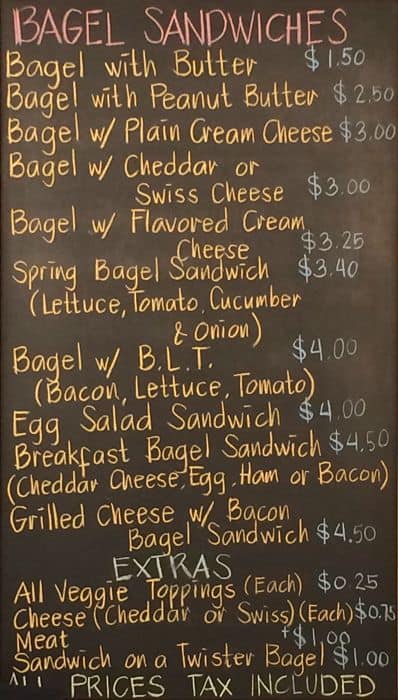 BAGEL SANDWICHES
Bagel with Butter $1.50
Bagel with Peanut Butter $2.50
Bagel w/ Plain Cream Cheese $3.00
Bagel w/ Cheddar or
Swiss Cheese $3.00
Bagel w/ Flavored Cream
Cheese $3.25
Spring Bagel Sandwich $3.40
(Lettuce, Tomato, Cucumber
& Onion)
Bagel w/ B.L.T. $4.00
(Bacon, Lettuce, Tomato)
Egg Salad Sandwich $4.00
Breakfast Bagel Sandwich $4.50
(Cheddar Cheese, Egg, Ham or Bacon)
Grilled Cheese w/ Bacon
Bagel Sandwich $4.50
EXTRAS
All Veggie Toppings (Each) $0.25
Cheese (Cheddar or Swiss) (Each) $0.75
Meat +$1.00
Sandwich on a Twister Bagel $1.00
All PRICES TAX INCLUDED